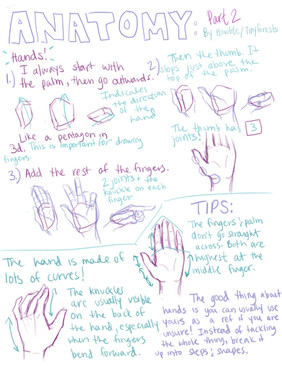 ANATOMY: Part 2
Hands!
I always start with
1.) the palm, then go outwards.
Indicates
the direction
of the
hand
Like a pentagon in
3d. This is important for drawing
fingers.
2) Then the thumb. It
stops just above the
top of the palm.
The thumb has 3
joints!
3.) Add the rest of the fingers.
2 joints + the
knuckle on each
finger
TIPS:
The fingers + palm
don't go straight
across. Both are
highest at the
middle finger.
The hand is made of
lots of curves!
The knuckles
are usually visible
on the back of
the hand, especially
when the fingers
bend forward.
The good thing about
hands is you can usually use
yours as a ref if you are
unsure! Instead of tackling
the whole thing, break it
up into steps + shapes.